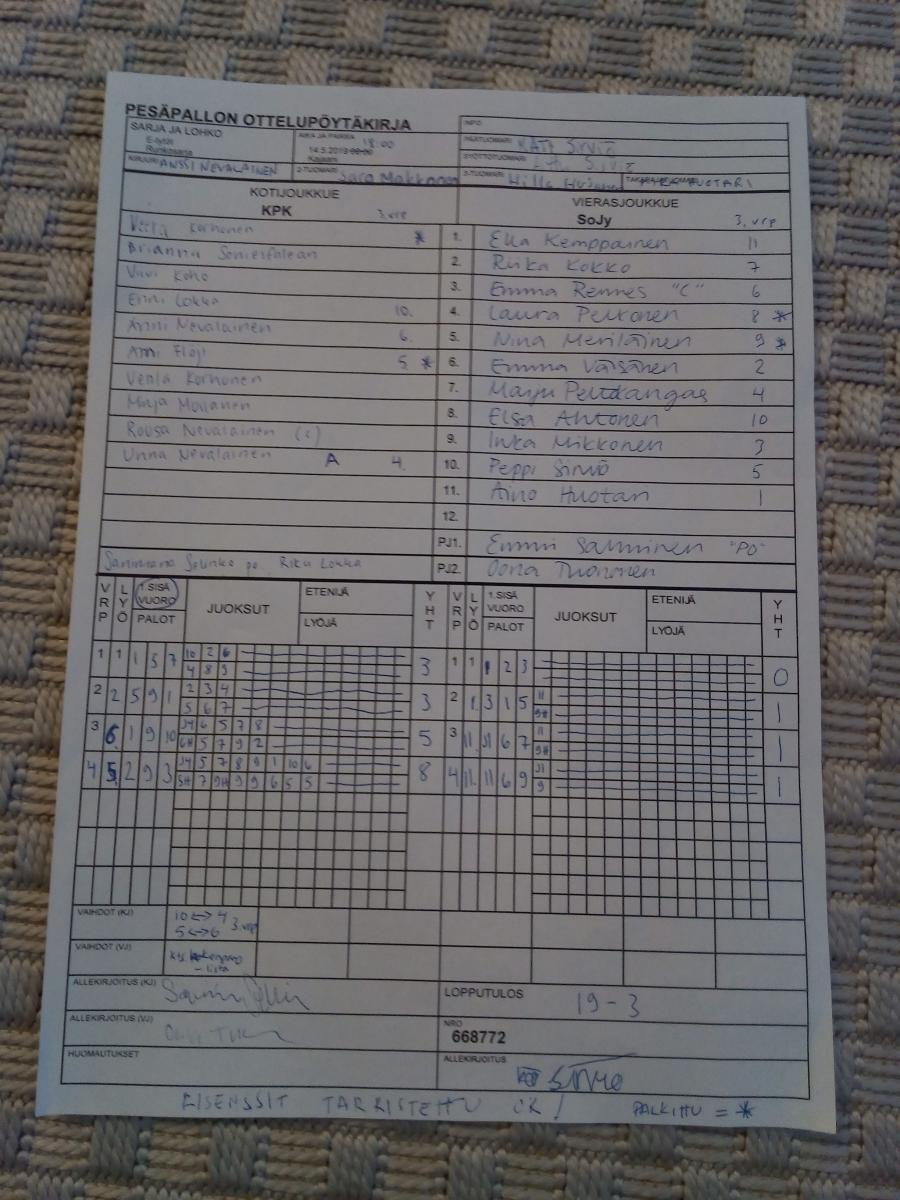 PESÄPALLON OTTELUPÖYTÄKIRJA
INFO
SARJA JA LOHKO
E-tytöt
Runkosarja
AIKA JA PAIKKA 18:00
14.5.2013
Kajaani
PÄÄTUOMARI Sirviö
SYÖTTÖTUOMARI
KIRJURI ANSSI NEVALAINEN
2-TUOMARI Sara Makkonen
3-TUOMARI Hilla
TAKARAJATUOMARI HUOTARI
KOTIJOUKKUE
KPK 3. vrp
VIERASJOUKKUE
SoJy 3. vrp
Korhonen * 1. Ella Kemppainen 11
Brianna 2. Riika Kokko 7
Vuvi Koho 3. Emma Rennes "C" 6
Enni Lokka 10. 4. Laura Pelkonen 8 *
Anni Nevalainen 6. 5. Nina Meriläinen 9 *
Anni Flöjt 5 * 6. Emma Väisänen 2
Venla Korhonen 7. Marju Peltokangas 4
Minja Moilanen 8. Elsa Ahtonen 10
Roosa Nevalainen (c) 9. Inka Mikkonen 3
Unna Nevalainen A 4. 10. Peppi Sirviö 5
11. Aino Huotari 1
12.
PJ1. Emmi Salminen "PO"
Riku Lokka PJ2. Oona Tuononen
VRP LYÖ 1.SISÄ VUORO PALOT JUOKSUT ETENIJÄ LYÖJÄ YHT VRP LYÖ 1.SISÄ VUORO PALOT JUOKSUT ETENIJÄ LYÖJÄ YHT
1 1 1 5 7 10 2 6 3 1 1 1 2 3 0
4 8 9
2 2 5 9 1 2 3 4 3 2 1. 3 1 5 11 1
5 6 7 9H
3 6. 1 9 10 J4 6 5 7 8 5 3 11. J1 6 7 11 1
6H 5 7 9 2 9H
4 5. 2 9 3 J4 5 7 8 9 1 10 6 8 4 11. 11 6 9 J1 1
5H 7 9H 9 9 6 5 5 9
VAIHDOT (KJ) 10 <-> 4
5 <-> 6 3.vrp
VAIHDOT (VJ)
- lista
ALLEKIRJOITUS (KJ)
LOPPUTULOS 19-3
ALLEKIRJOITUS (VJ)
NRO
668772
HUOMAUTUKSET
ALLEKIRJOITUS
LISENSSIT TARKISTETTU OK! PALKITTU = *